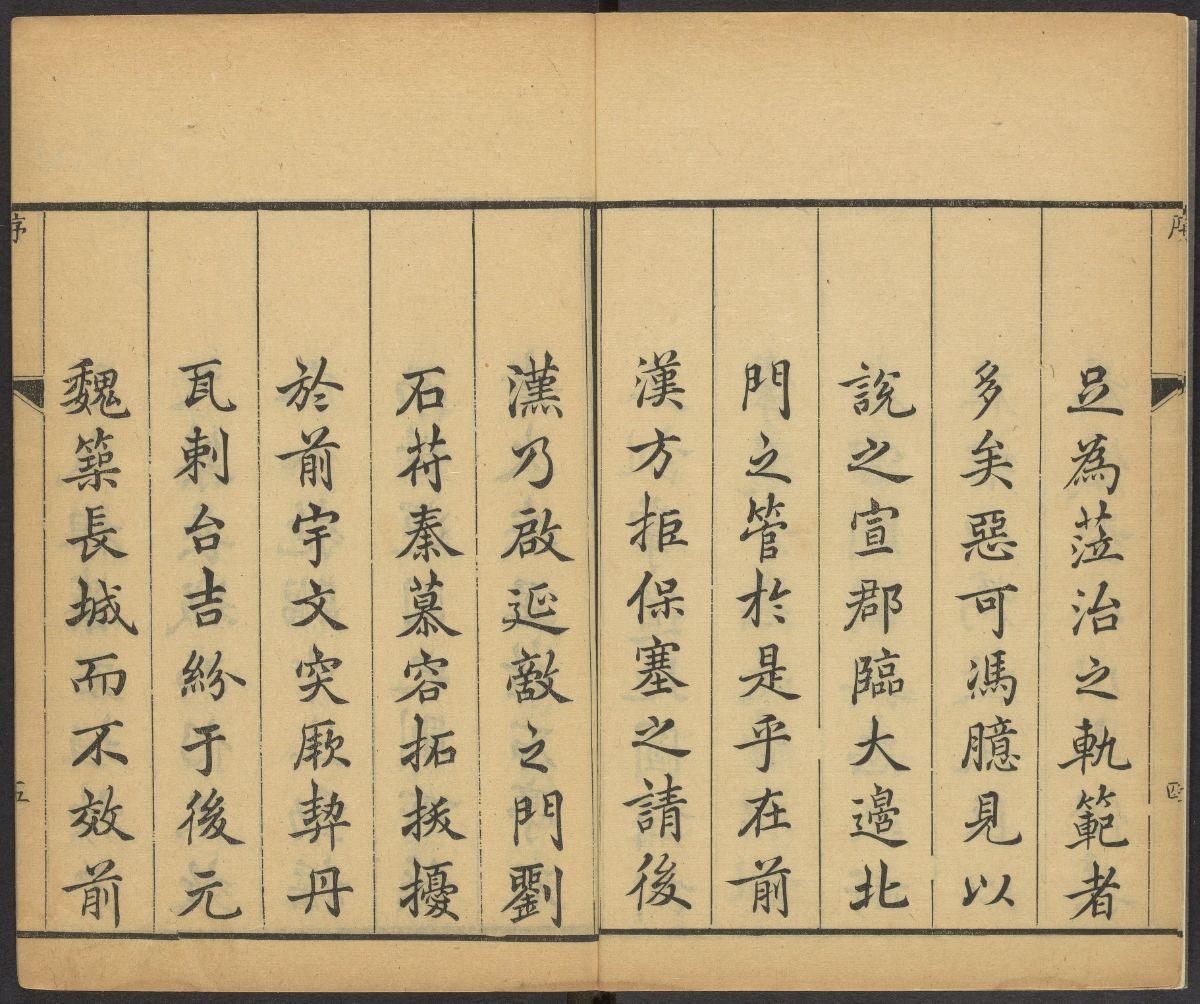 足為蒞治之軌範者
多矣惡可馮臆見以
說之宣郡臨大邊北
門之管於是乎在前
漢方拒保塞之請後
漢乃啟延敵之門劉
石苻秦慕容拓拔擾
於前宇文突厥契丹
瓦剌台吉紛于後元
魏築長城而不效前
序
五
四